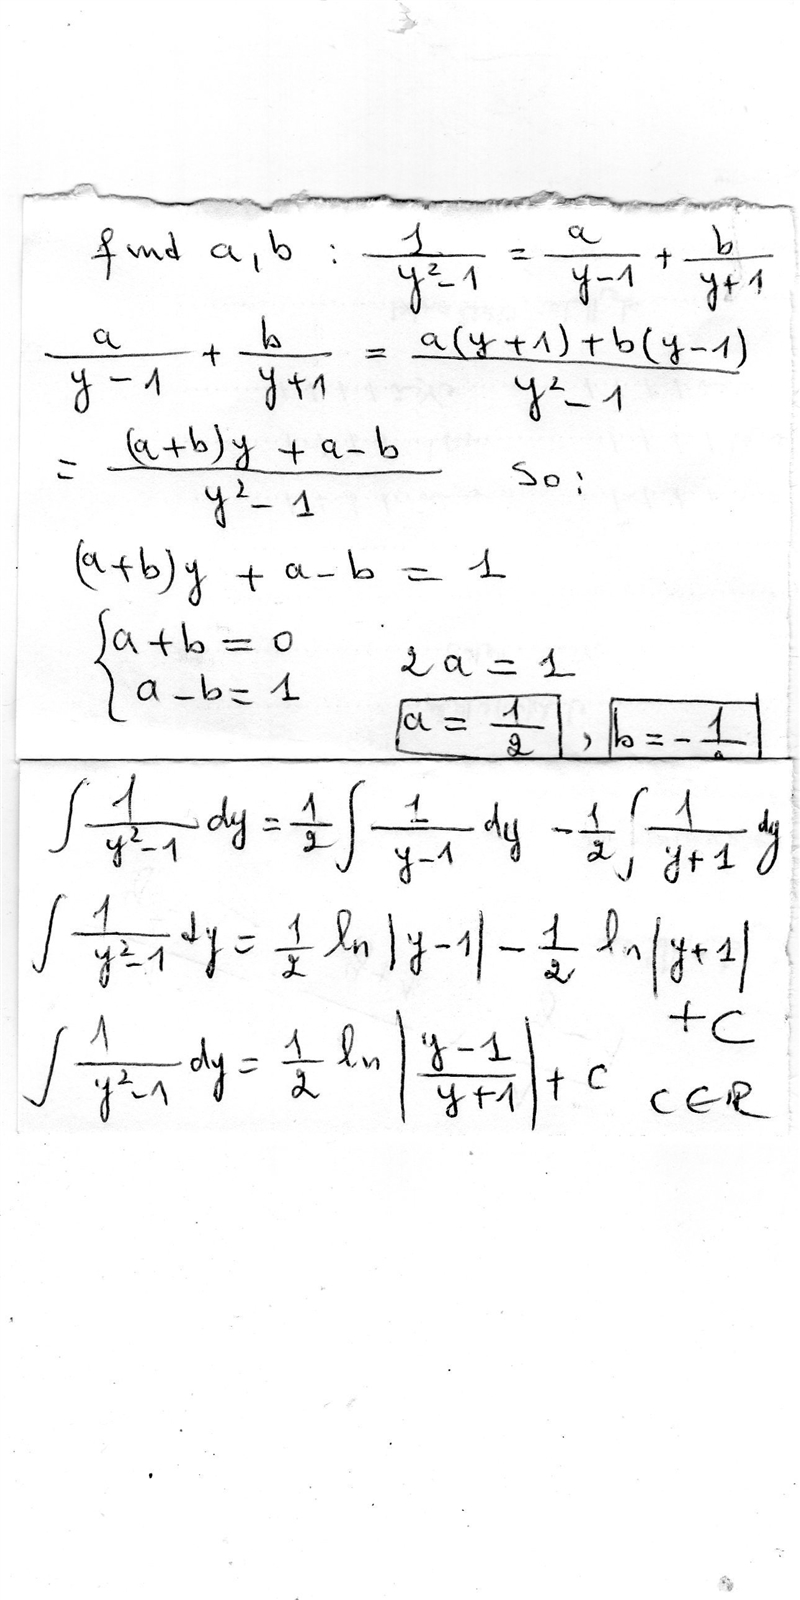 find a, b : 1/(y²-1) = a/(y-1) + b/(y+1)
a/(y-1) + b/(y+1) = (a(y+1)+b(y-1))/(y²-1)
= ((a+b)y + a-b)/(y²-1) So:
(a+b)y + a-b = 1
{ a+b = 0
a-b = 1 2a = 1
a = 1/2 , b = -1/
∫ 1/(y²-1) dy = 1/2 ∫ 1/(y-1) dy - 1/2 ∫ 1/(y+1) dy
∫ 1/(y²-1) dy = 1/2 ln |y-1| - 1/2 ln |y+1|
+ C
∫ 1/(y²-1) dy = 1/2 ln |(y-1)/(y+1)| + C C∈R